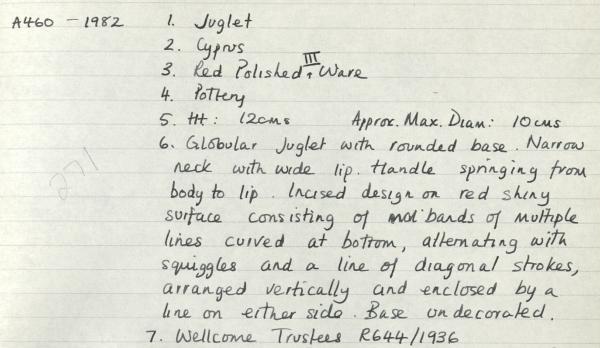 A460 - 1982 1. Juglet
2. Cyprus
3. Red Polished III Ware
4. Pottery
5. Ht: 12cms Approx. Max. Diam: 10cms
6. Globular Juglet with rounded base. Narrow
neck with wide lip. Handle springing from
body to lip. Incised design on red shiny
surface consisting of bands of multiple
lines curved at bottom, alternating with
squiggles and a line of diagonal strokes,
arranged vertically and enclosed by a
line on either side. Base undecorated.
7. Wellcome Trustees R644/1936
271